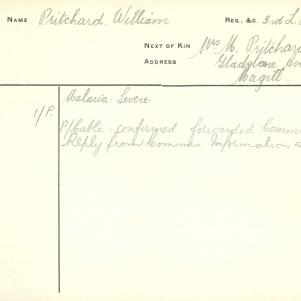 NAME Pritchard, William REG. &c. 3rd L.
NEXT OF KIN Mrs M. Pritchard
ADDRESS Gladstone Ave
Magill.
Malaria. Severe.
1/P.
P/Cable - confirmed - forwarded Comm
Reply from Commns. Information